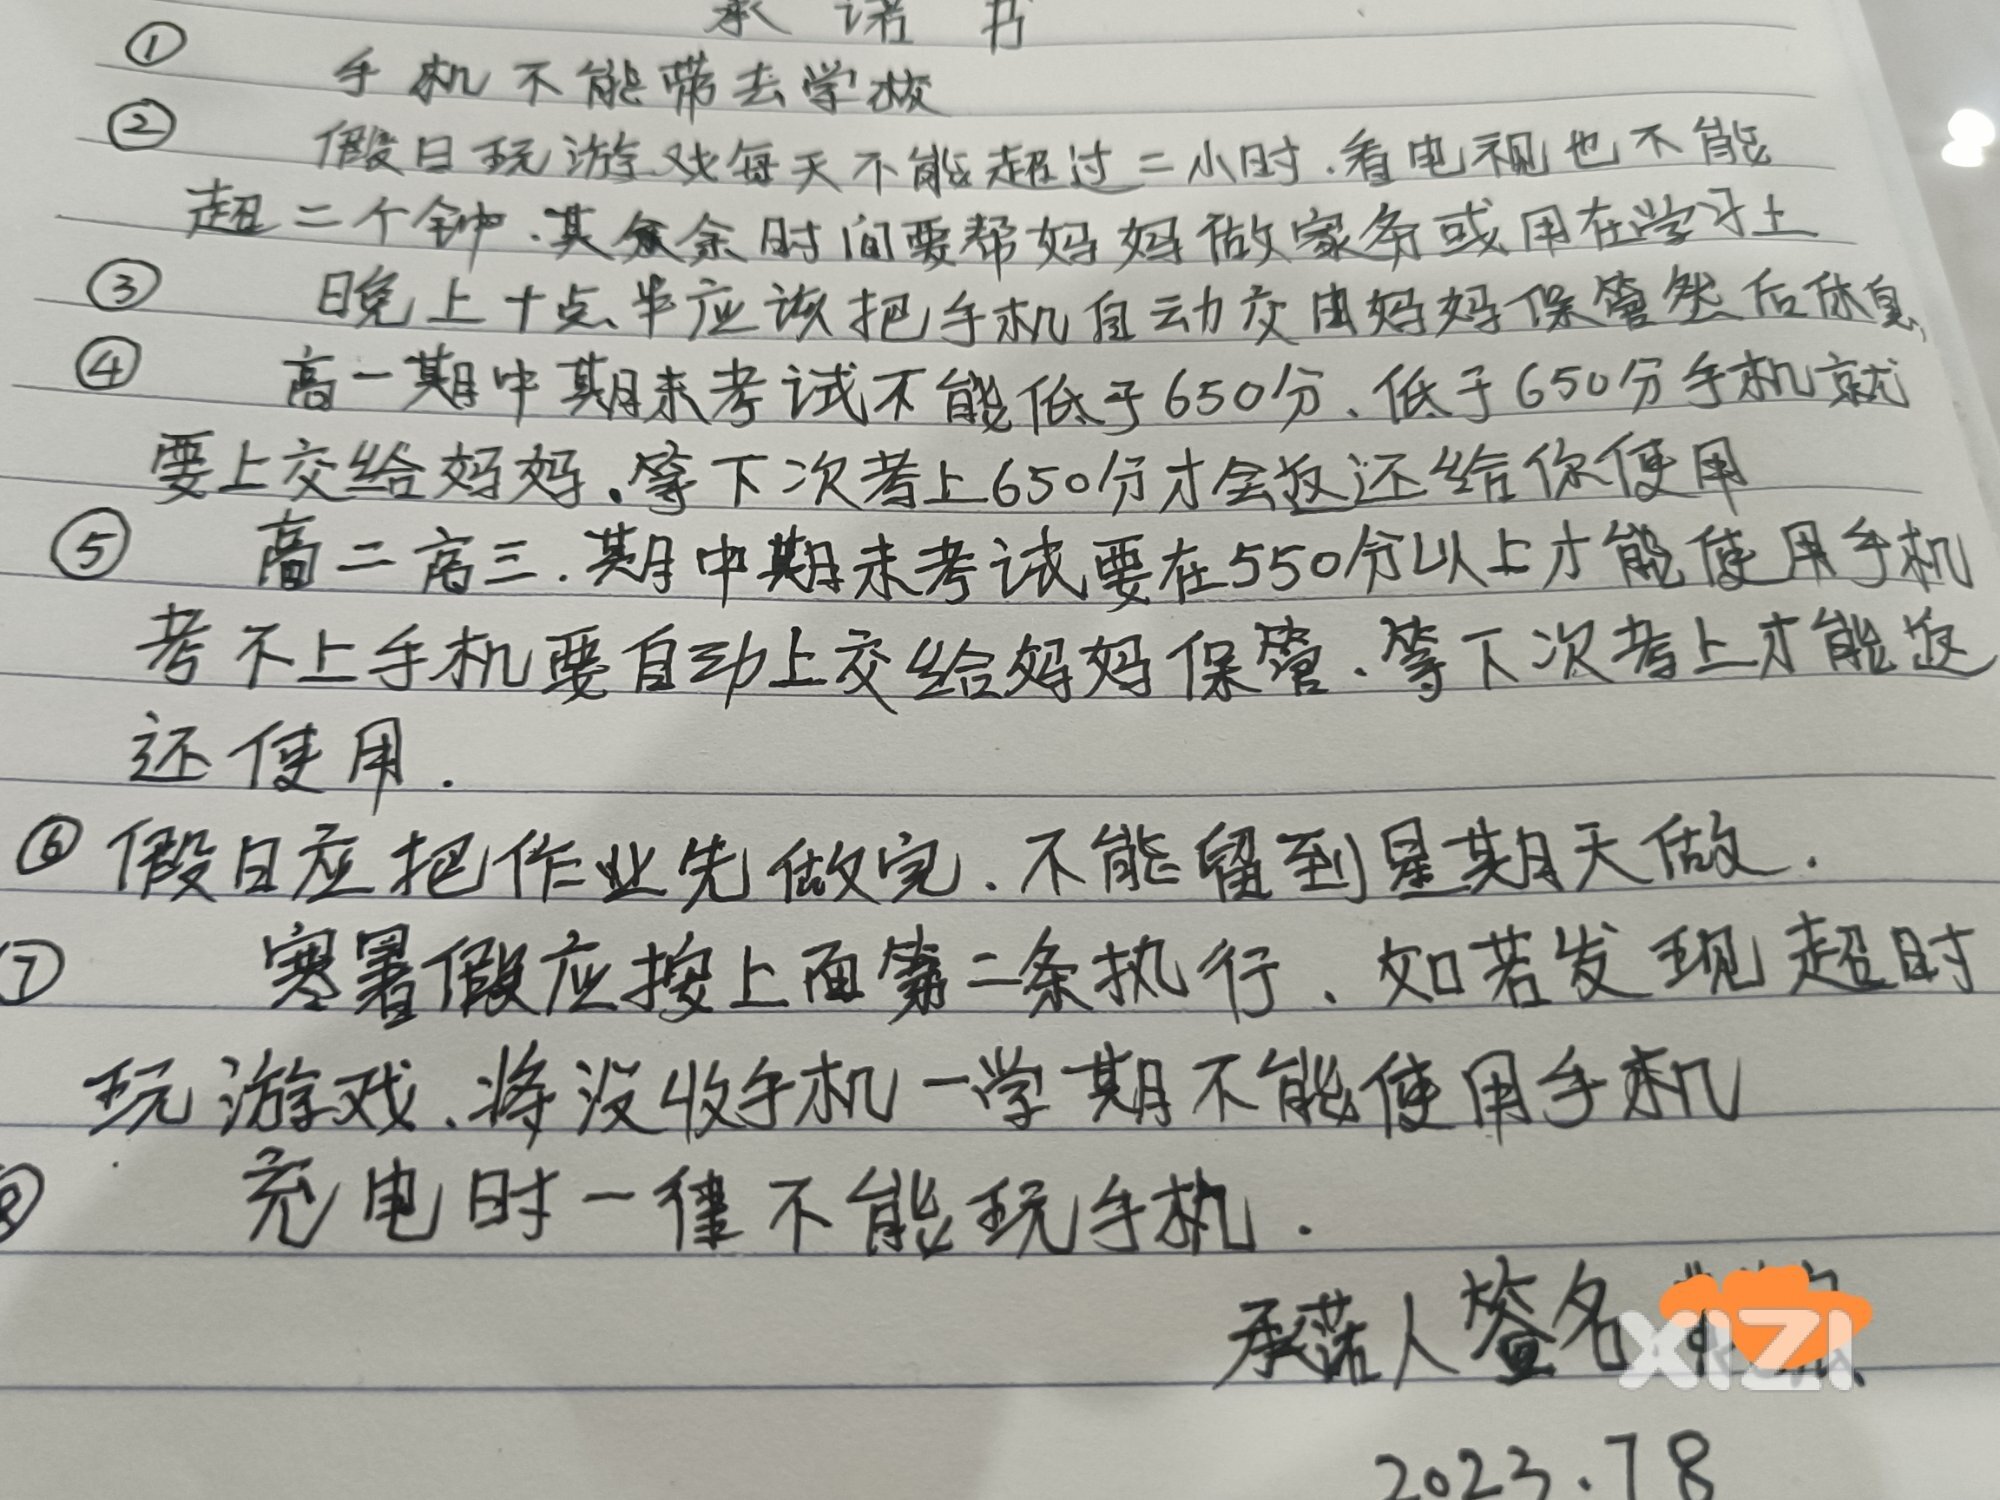 承 诺 书
① 手机不能带去学校
② 假日玩游戏每天不能超过二小时.看电视也不能
超二个钟.其余时间要帮妈妈做家务或用在学习上
③ 晚上十点半应该把手机自动交由妈妈保管然后休息,
④ 高一期中期末考试不能低于650分、低于650分手机就
要上交给妈妈.等下次考上650分才会返还给你使用
⑤ 高二高三.期中期末考试要在550分以上才能使用手机
考不上手机要自动上交给妈妈保管.等下次考上才能返
还使用.
⑥ 假日应把作业先做完.不能留到星期天做.
⑦ 寒暑假应按上面第二条执行、如若发现超时
玩游戏.将没收手机一学期不能使用手机
⑧ 充电时一律不能玩手机.
承诺人签名
XIZI
2023.7 8